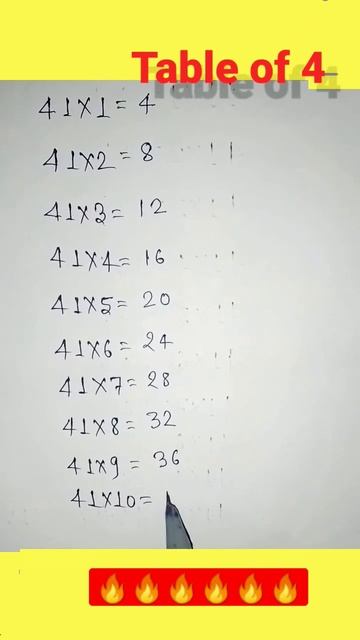 Table of 4
41×1= 4
41×2= 8
41×3= 12
41×4= 16
41×5= 20
41×6= 24
41×7= 28
41×8= 32
41×9= 36
41×10=